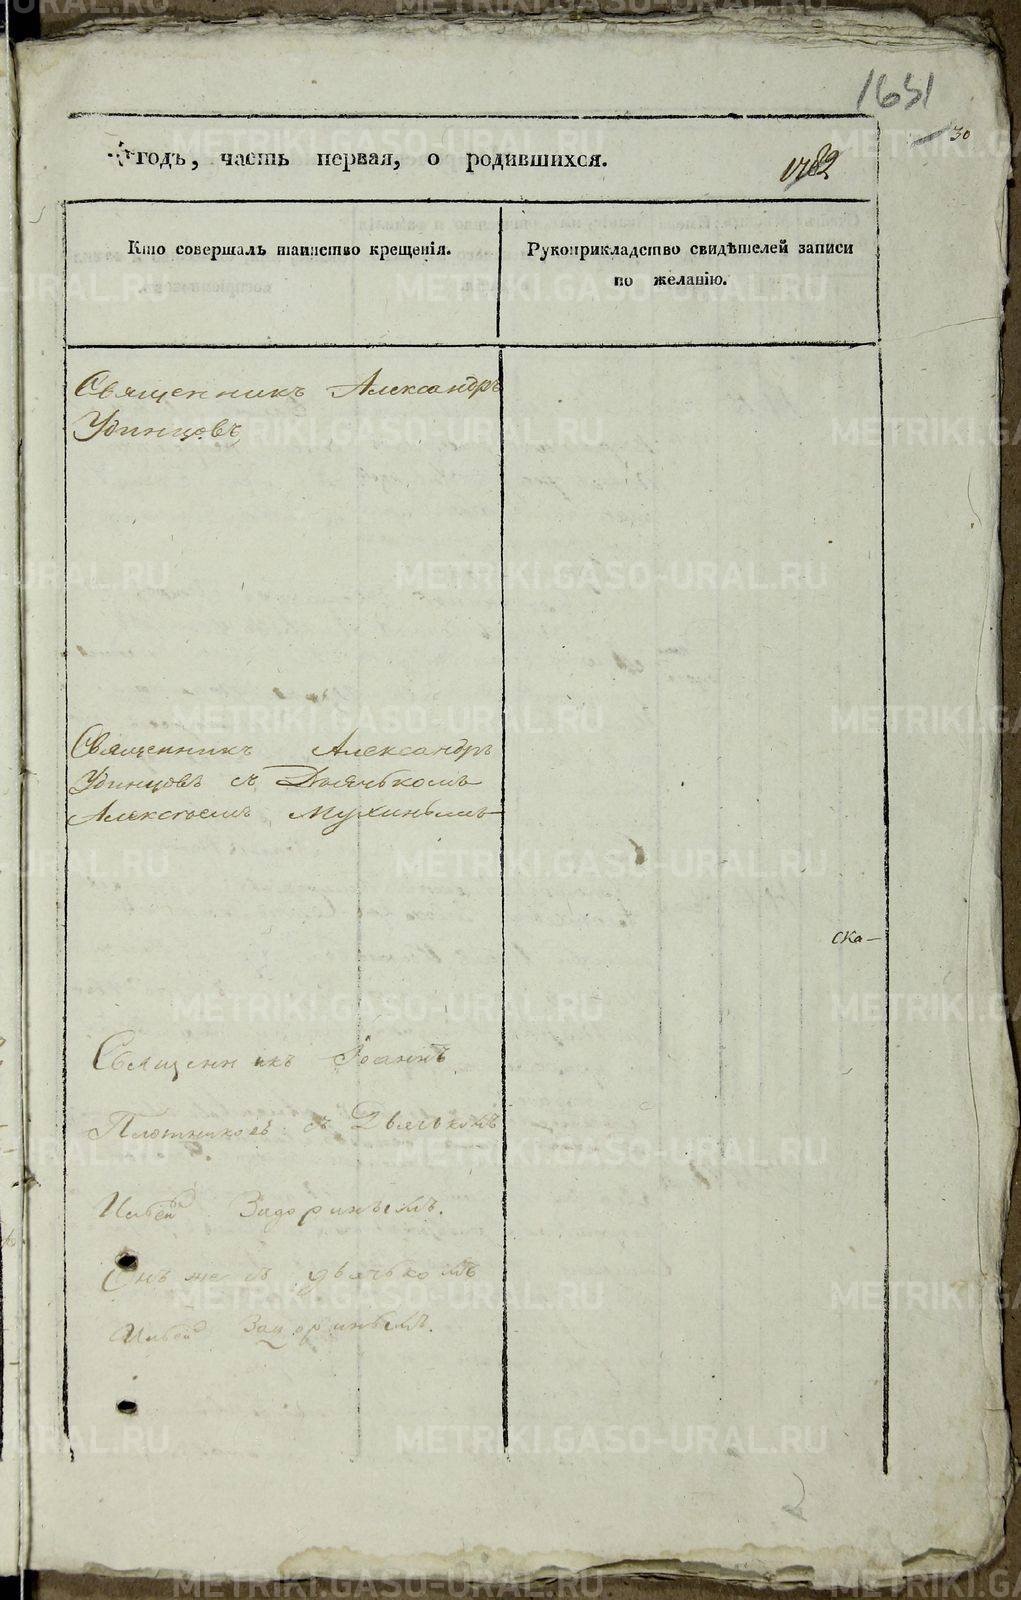 1651
30
годъ, часть первая, о родившихся.
Кто совершалъ таинство крещенія.
Рукоприкладство свидѣтелей записи
по желанію.
Священникъ Александръ
Удинцовъ
Священникъ Александръ
Удинцовъ съ Дьячькомъ
Алексѣемъ Мухинымъ
ска-
Священникъ Іоаннъ
Плотниковъ съ Дьячькомъ
Задоринымъ.
Онъ же съ дьячькомъ
Задоринымъ.
METRIKI.GASO-URAL.RU